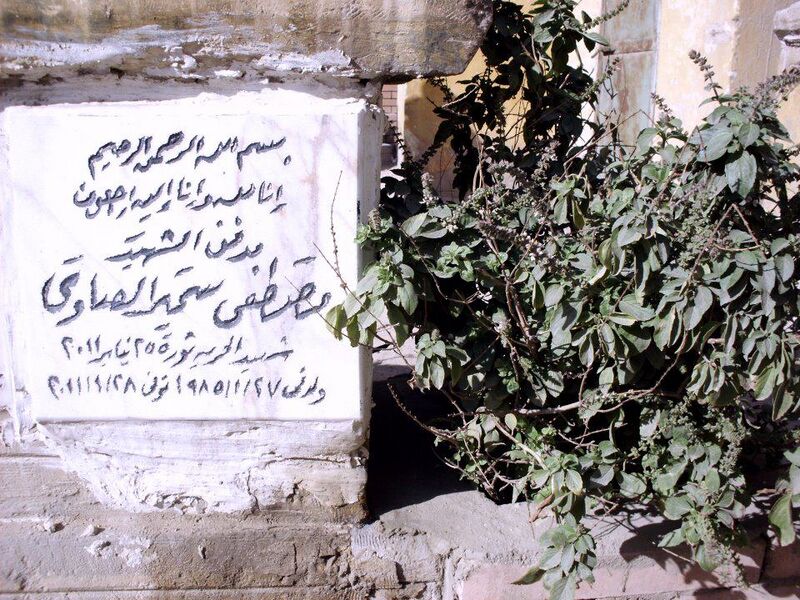 بسم الله الرحمن الرحيم
إنا لله وإنا إليه راجعون
مدفن الشهيد
مصطفى سمير الصاوى
شهيد الحريه ثورة ٢٥ يناير ٢٠١١
ولد فى ١٩٨٥/١/٢٧ توفى ٢٠١١/١/٢٨